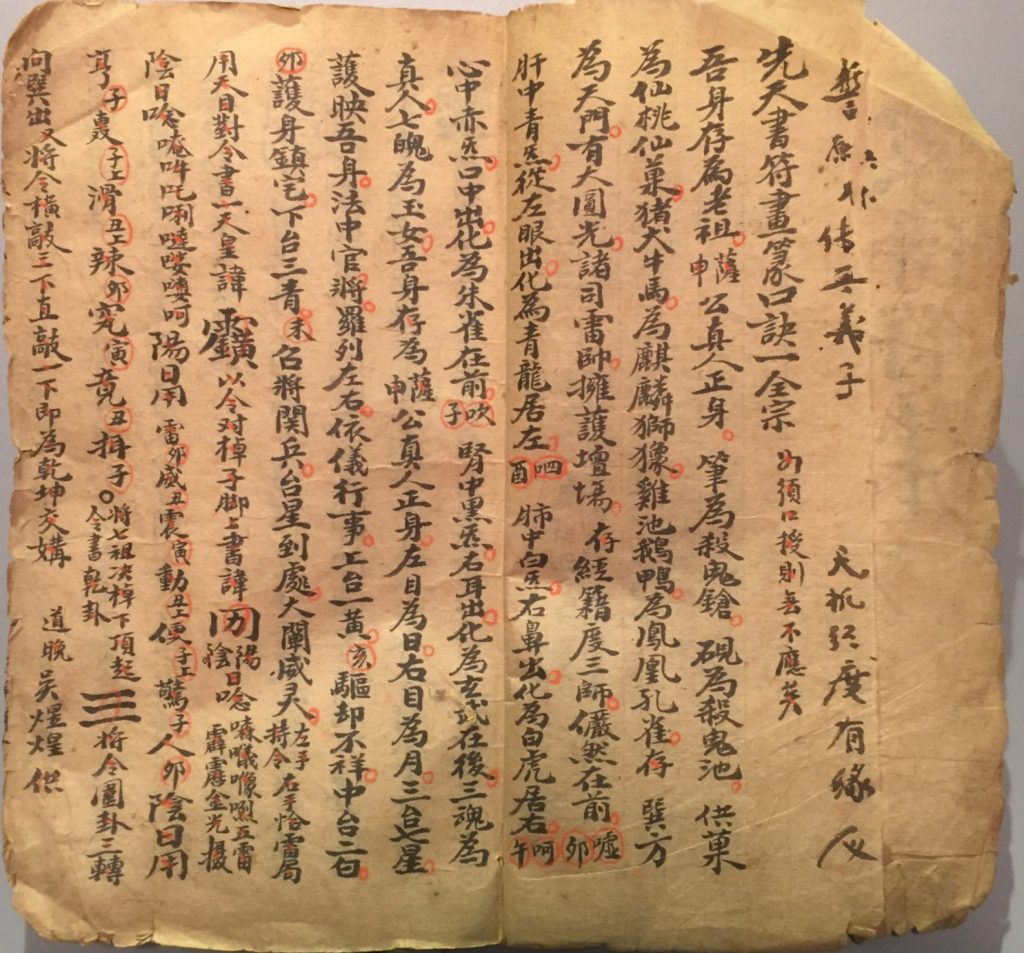 誓願不傳無義子　天机須度有緣人
先天書符畫篆口訣一全宗　必須口授則無不應矣
吾身存為老祖薩申公真人正身　筆為殺鬼鎗　硯為殺鬼池　供菓
為仙桃仙菓猪犬牛馬為麒麟獅㺄雞池鵝鴨為鳳凰孔雀存　巽方
為天門有大圓光諸司雷帥擁護壇場　存經籍度三師儼然在前　噓卯呵午
肝中青炁從左眼出化為青龍居左　呬酉　肺中白炁右鼻出化為白虎居右
心中赤炁口中出化為朱雀在前吹子　腎中黑炁右耳出化為玄武在後三魂為
真人七魄為玉女吾身存為薩申公真人正身左目為日右目為月三台七星
護映吾身法中官將羅列左右依儀行事上台一黃亥驅却不祥中台二白
卯護身鎮宅下台三青未召將関兵台星到處大闡威灵　左手持令右手恰雷局
用天目對令書一天皇諱　以令对棹子脚上書諱　陽日念　五雷霹靂金光摄
陰日唸唵吽吒唎　呵陽日用雷卯威丑震寅動丑上便子上驚子人卯陰日用
亨子轟子上滑丑上辣卯究寅竟丑揖子　將七祖决棹下頂起　令書乾卦　☰　將令圓卦三轉
向巽出又将令橫敲三下直敲一下即為乾坤交媾　道晚　吳煋煋供